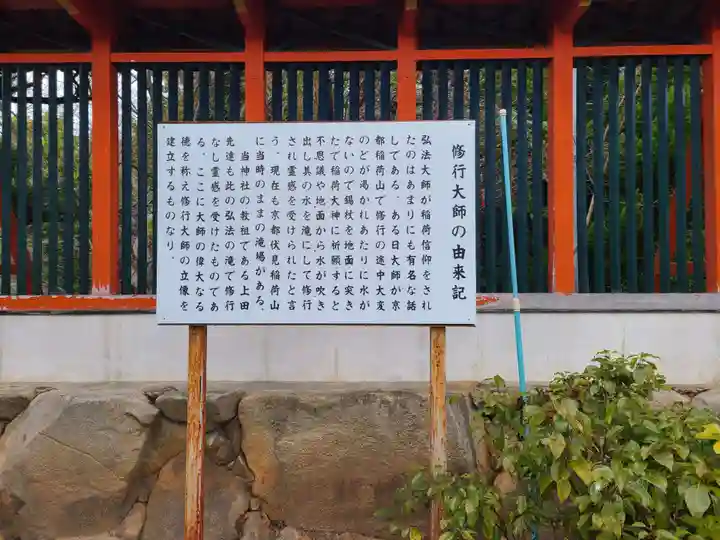 修行大師の由来記
弘法大師が稲荷信仰をされ
たのはあまりにも有名な話
しである、ある日大師が京
都稲荷山で修行の途中大変
のどが渇かれあたりに水が
ないので錫杖を地面に突き
たて稲荷大神に祈願すると
不思議や地面から水が吹き
出し其の水を滝にして修行
され霊感を受けられたと言
う、現在も京都伏見稲荷山
に当時のままの滝場がある、
当神社の教祖である上田
先達も此の弘法の滝で修行
なし霊感を受けたものであ
る、ここに大師の偉大なる
徳を称え修行大師の立像を
建立するものなり、